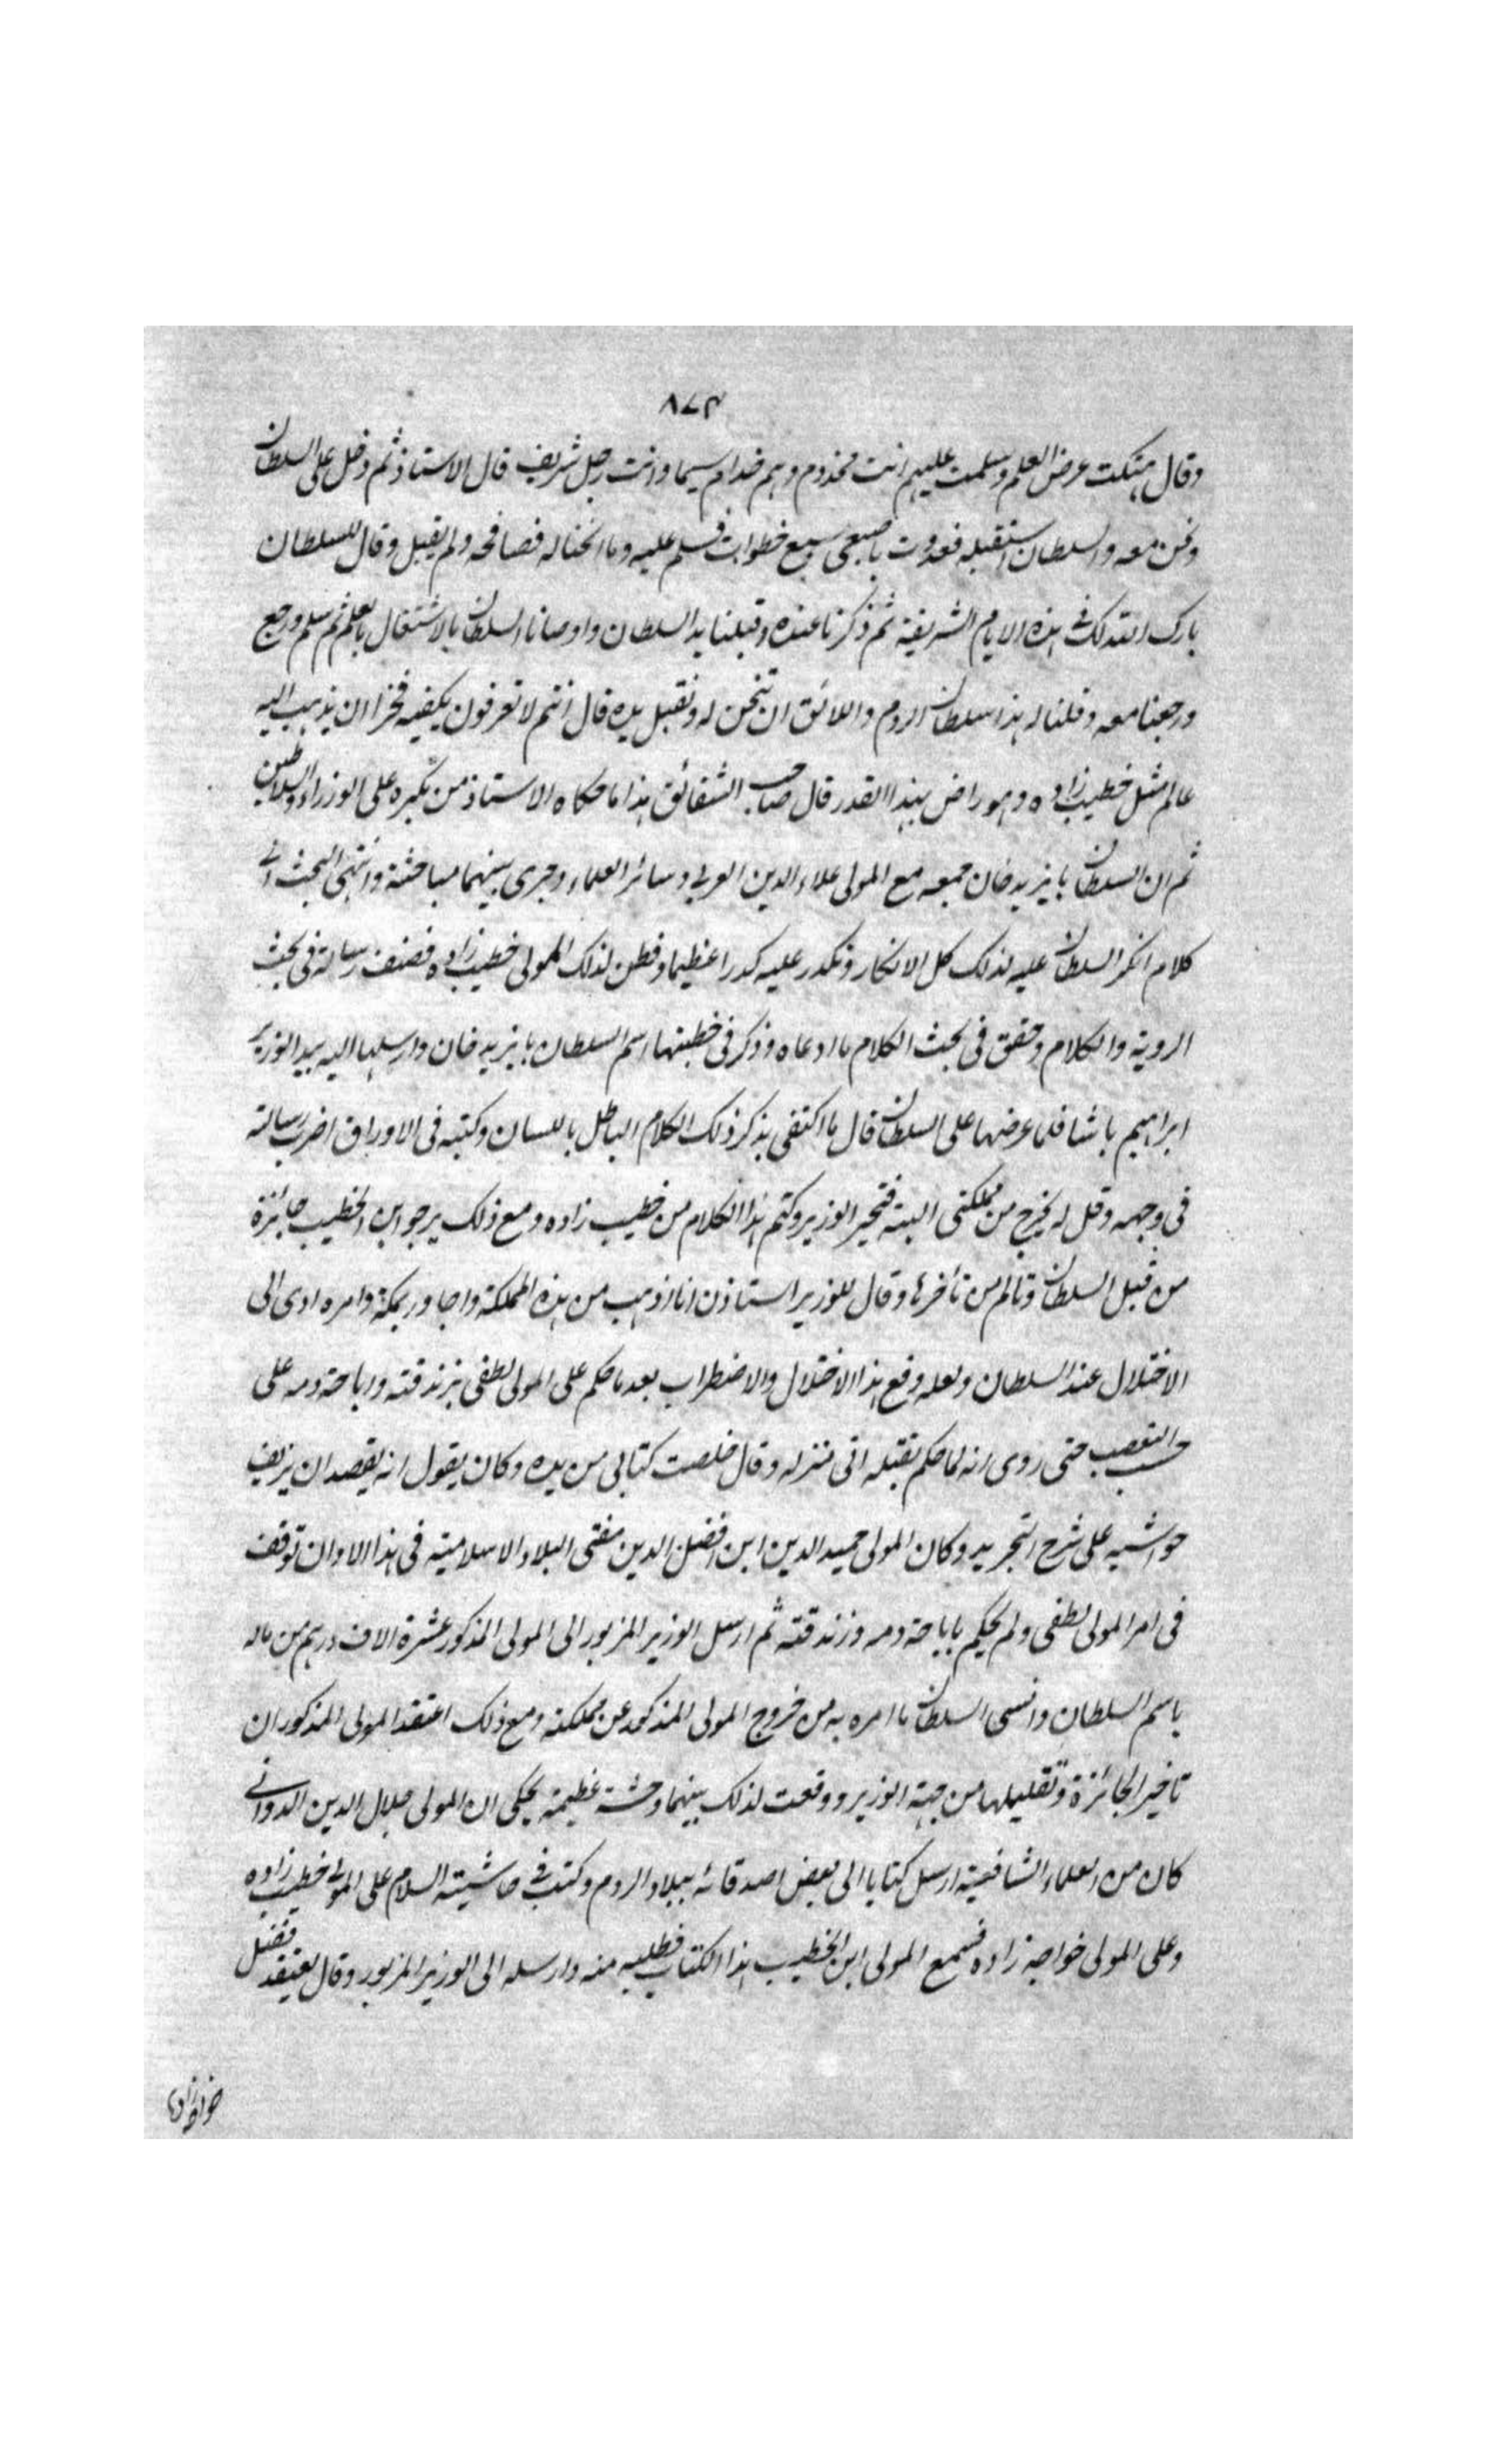 ٨٧٣
وقال هتكت عرض العلم وسلمت عليهم انت مخدوم وهم خدام سيما وانت رجل شريف قال الاستاذ ثم دخل على السلطان
ونحن معه والسلطان استقبله فعدوت باصبعى سبع خطوات فسلم عليه وما انحنا له فصافحه ولم يقبل وقال للسلطان
بارك الله لك فى هذه الايام الشريفة ثم ذكرنا عنده وقبلنا يد السلطان واوصانا السلطان بالاشتغال بالعلم ثم سلم ورجع
ورجعنا معه وقلنا له هذا سلطان الروم واللائق ان تنحن له وتقبل يده قال انتم لا تعرفون يكفيه فخرا ان يذهب اليه
عالم مثل خطيب زاده وهو راض بهذا القدر قال صاحب الشقائق هذا ما حكاه الاستاذ من تكبره على الوزراء والسلاطين
ثم ان السلطان بايزيد خان جمعه مع المولى علاء الدين العربى وسائر العلماء وجرى بينهما مباحثة وانتهى البحث الى
كلام انكر السلطان عليه لذلك كل الانكار وتكدر عليه كدرا عظيما وفطن لذلك المولى خطيب زاده فصنف رسالة فى بحث
الروية والكلام وحقق فى بحث الكلام ما ادعاه وذكر فى خطبتها اسم السلطان بايزيد خان وارسلها اليه بيد الوزير
ابراهيم باشا فلما عرضها على السلطان قال ما اكتفى بذكر ذلك الكلام الباطل باللسان وكتبه فى الاوراق اضرب رسالته
فى وجهه وقل له يخرج من مملكتى البتة فتحير الوزير وكتم هذا الكلام من خطيب زاده ومع ذلك يرجو ابن الخطيب جائزة
من قبل السلطان وتالم من تأخرها وقال للوزير استاذن انا اذهب من هذه المملكة واجاور بمكة وامره ادى الى
الاختلال عند السلطان ولعله وقع هذا الاختلال والاضطراب بعد ما حكم على المولى لطفى بزندقته واباحة دمه على
حسب التعصب حتى روى انه لما حكم بقتله اتى منزله وقال خلصت كتابى من يده وكان يقول انه يقصد ان يزيف
حواشيه على شرح التجريد وكان المولى حميد الدين ابن افضل الدين مفتى البلاد الاسلامية فى هذا الاوان توقف
فى امر المولى لطفى ولم يحكم باباحة دمه وزندقته ثم ارسل الوزير المزبور الى المولى المذكور عشرة الاف درهم من ماله
باسم السلطان وانسى السلطان ما امره به من خروج المولى المذكور عن مملكته ومع ذلك اعتقد المولى المذكور ان
تاخير الجائزة وتقليلها من جهة الوزير ووقعت لذلك بينهما وحشة عظيمة يحكى ان المولى جلال الدين الدوانى
كان من العلماء الشافعية ارسل كتابا الى بعض اصدقائه ببلاد الروم وكتب فى حاشيته السلام على المولى خطيب زاده
وعلى المولى خواجه زاده فسمع المولى ابن الخطيب هذا الكتاب فطلبه منه وارسله الى الوزير المزبور وقال يعتقد تفضيل
خواجه زاده